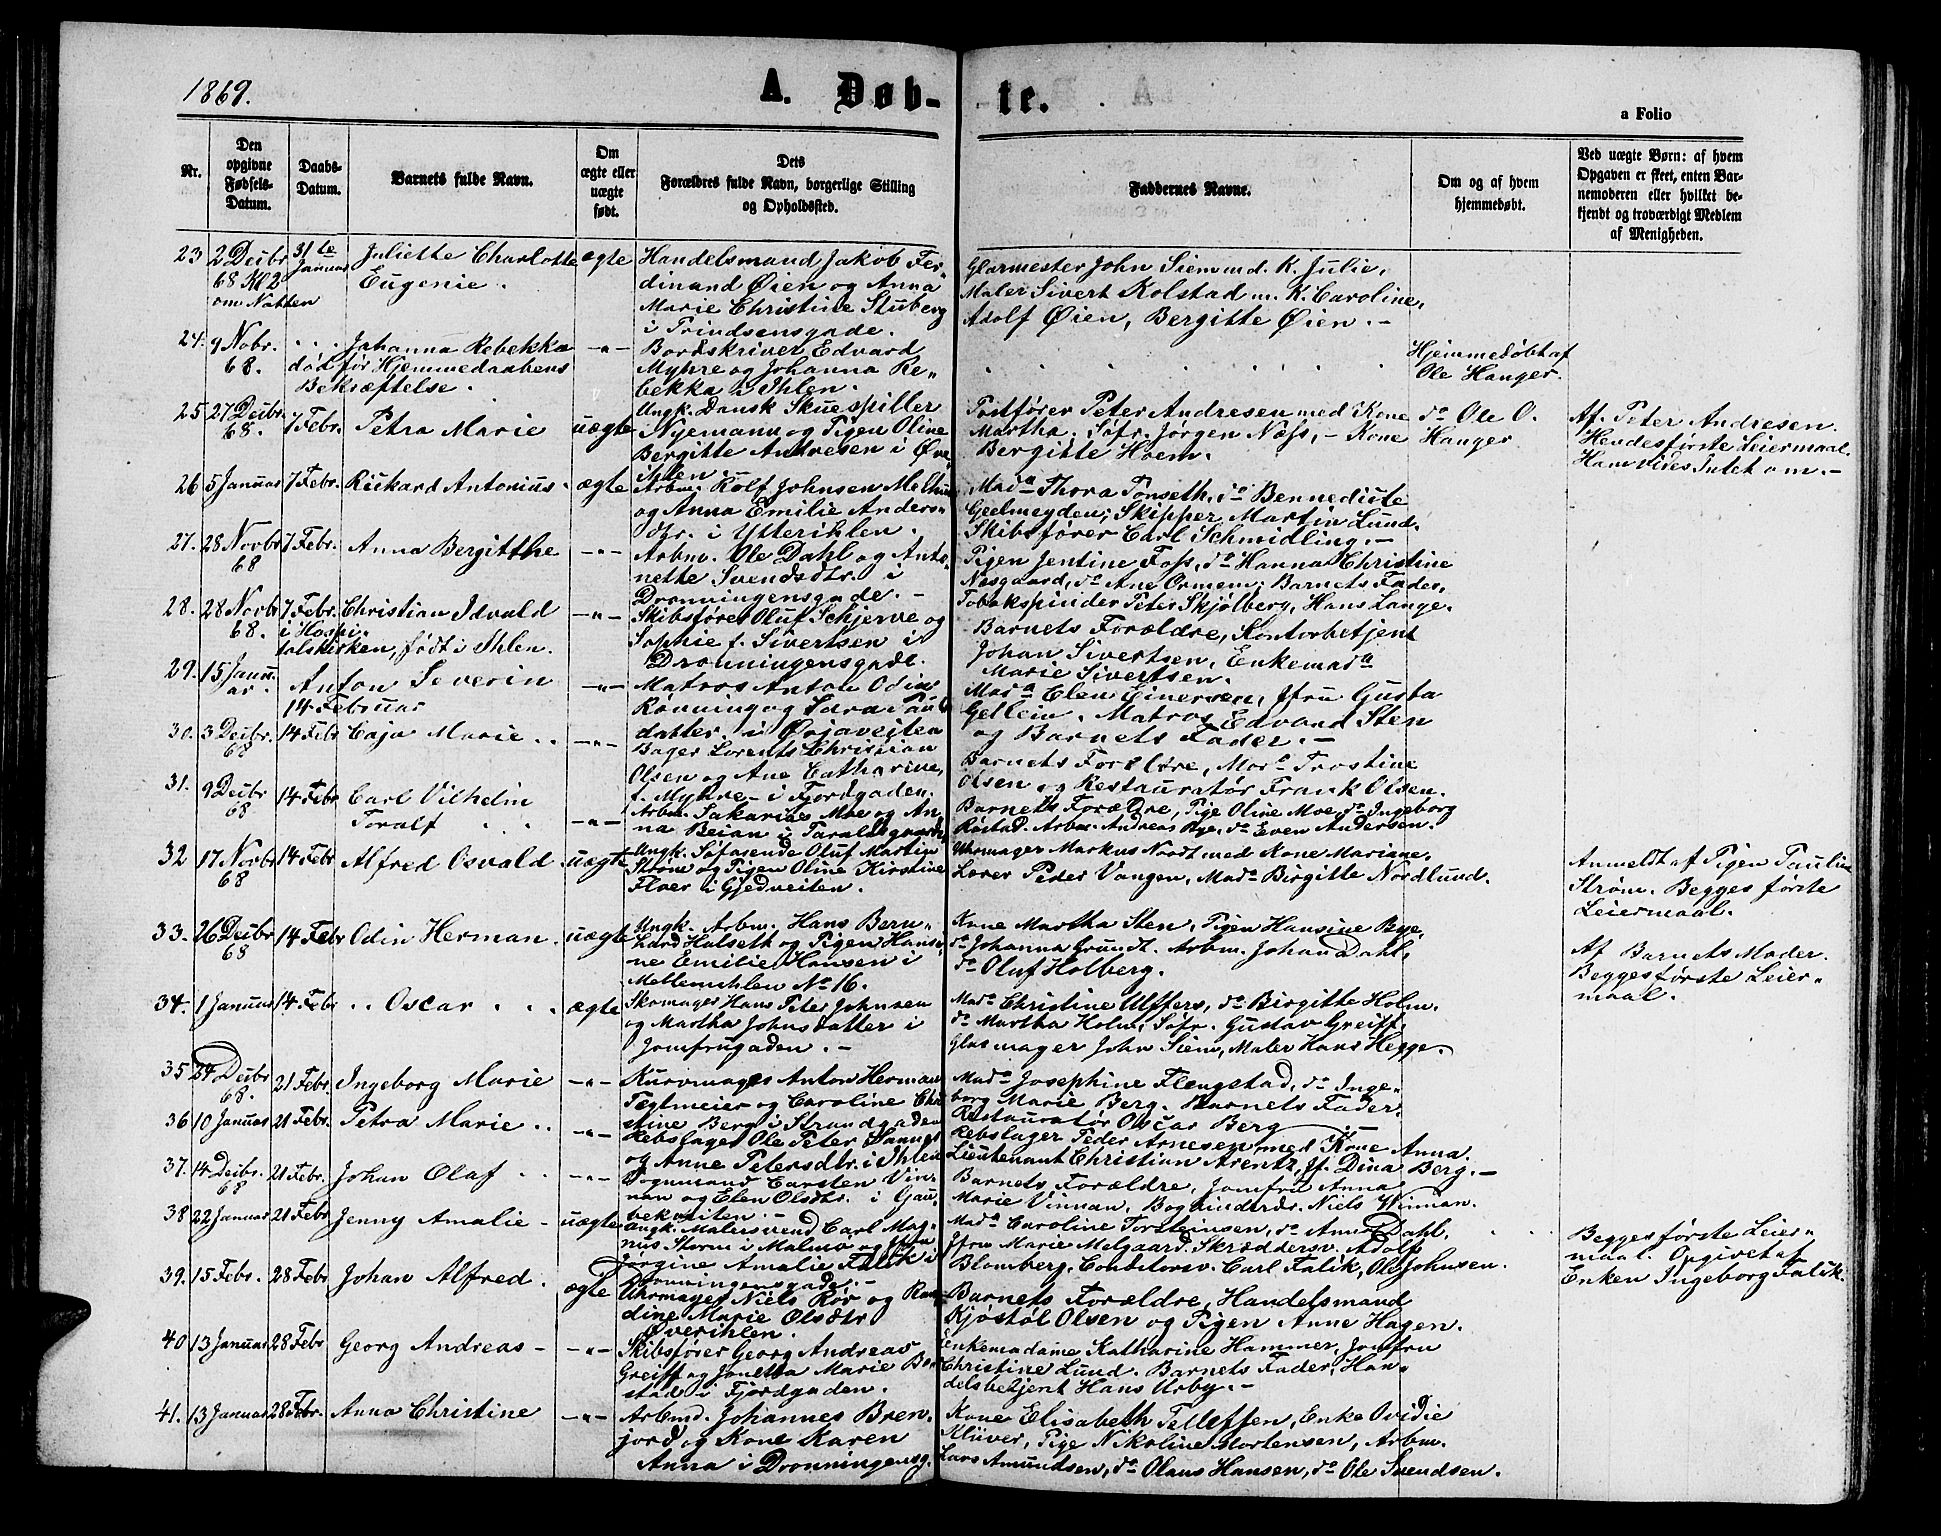 1869.
A. Døb-
te.
a Folio
Nr.
Den opgivne Fødsels-Datum.
Daabs-Datum.
Barnets fulde Navn.
Om ægte eller uægte født.
Dets Forældres fulde Navn, borgerlige Stilling og Opholdssted.
Faddernes Navne.
Om og af hvem hjemmedøbt.
Ved uægte Børn: af hvem Opgaven er skeet, enten Barnemoderen eller hvilket bekjendt og troværdigt Medlem af Menigheden.
23 2 Decbr 68 Kl 2 om Natten
31te Januar
Juliette Charlotte
Eugenie.
ægte
Handelsmand Jakob Fer-
dinand Øien og Anna
Marie Christine Stuberg
i Prindsensgade.
Glarmester John Siem m. K. Julie,
Maler Sivert Kolstad m. K. Caroline,
Adolf Øien, Bergitte Øien. -
24. 9 Nobr. 68.
Johanna Rebekka
død før Hjemmedaabens
Bekræftelse.
-"-
Bordskriver Edvard
Myhre og Johanna Re-
bekka i Ihlen.
Hjemmedøbt af
Ole Hanger.
25 27 Decbr. 68.
7 Febr.
Petra Marie
uægte
Ungk. Dansk Skuespiller
Nyemann og Pigen Oline
Bergitte Andresen i Øvre
ihlen
Postfører Peter Andresen med Kone
Martha. Snfr. Jørgen Næss, - Kone
Bergitte Hoem.
do Ole O.
Hanger
Af Peter Andresen.
Hendes første Leiermaal.
Ham vides Intet om. -
26 5 Januar 7 Febr.
Rickard Antonius.
ægte
Arbm. Rolf Johnsen Melhuus
og Anna Emilie Anders-
dtr. i Ytterihlen.
Mada Thora Tonseth, do Bennedicte
Geelmeyden; Skipper Martin Lund.
Skibsfører Carl Schmidling. -
27. 28 Novbr 68
7 Febr.
Anna Bergitthe
-"-
Arbm. Ole Dahl og Anto-
nette Svendsdtr. i
Dronningensgade. -
Pigen Jentine Foss, do Hanna Christine
Næsgaard, do Ane Ormem; Barnets Fader,
Tobakspinder Peter Skjølberg, Hans Lange.
28. 28 Novb 68.
7 Febr.
i Hospi-
talskirken, født i Ihlen.
Christian Idvald
-"-
Skibsfører Oluf Schjerve og
Sophie f. Sivertsen i
Dronningensgade.
Barnets Forældre, Kontorbetjent
Johan Sivertsen, Enkemada
Marie Sivertsen.
29. 15 Janu-
ar.
Anton Severin
14 Februar
-"-
Matros Anton Odin
Rønning og Sara Pauls
datter i Øijaveiten
Mada Elen Einersen, Jfru Gusta
Gellein. Matros Edvard Sten
og Barnets Fader. -
30. 3 Decbr. 68
14 Febr
Caja Marie
-"-
Bager Lorents Christian
Olsen og Ane Catharine,
f. Myhre - i Fjordgaden.
Barnets Forældre, Mada Trostine
Olsen og Restauratør Frank Olsen.
31. 9 Decbr 68
14 Febr
Carl Vilhelm
Toralf
-"-
Arbm. Sakarias Moe og An-
na Beian i Taraldsgaarden
Barnets Forældre, Pige Oline Moe, do Ingeborg
Røstad. Arbm. Andreas Rye, do Even Andersen.
32 17 Novbr 68
14 Febr
Alfred Osvald
uægte
Ungk. Søfarende Oluf Martin
Strøm og Pigen Oline Kirstine
Floer i Gjedveiten.
Uhrmager Markus Nordt med Kone Mariane,
Lærer Peder Vangen, Mada Birgitte Nordlund.
Anmeldt af Pigen Pauline
Strøm. Begges første
Leiermaal.
33. 26 Decbr 68
14 Febr
Odin Herman.
uægte
Ungk. Arbm. Hans Bern-
hard Halseth og Pigen Hansi-
ne Emilie Hansen i
Mellemihlen No 16.
Kone Martha Sten, Pigen Hansine Bye,
do Johanna Grundt. Arbm. Johan Dahl,
do Oluf Holberg.
Af Barnets Moder.
Begges første Leier-
maal.
34. 1 Januar 14 Febr
Oscar
ægte
Skomager Hans Peter Johnsen
og Martha Johnsdatter i
Jomfrugaden. -
Mada Christine Ulffers, do Birgitte Holm.
do Martha Holm, Snfr. Gustav Greiff,
Glasmager John Siem, Maler Hans Hegge.
35 24 Decbr 68.
21 Febr.
Ingeborg Marie
-"-
Kurvmager Anton Herman
Tegtmeier og Caroline Chri-
stine Berg i Strandgaden
Mada Josephine Flengstad, do Inge-
borg Marie Berg. Barnets Fader,
Restauratør Oscar Berg
36 10 Januar 21 Febr.
Petra Marie
-"-
Rebslager Ole Peter
og Anne Petersdtr. i Ihlen
Rebslager Peder Arnesen med Kone Anna.
Lieutenant Christian Arentz, Jf. Dina Berg. -
37. 14 Decbr. 68
21 Febr.
Johan Olaf
-"-
Vognmand Carsten Vin-
nan og Elen Olsdtr. i Gau-
bekveiten. -
Barnets Forældre, Jomfru Anna
Marie Vinnan, Bogbindersv. Niels Winnan.
38 22 Januar 21 Febr.
Jenny Amalie
uægte
Ungk. Malersvend Carl Mag-
nus Storm i Malmø og Jfru
Jørgine Amalie Falik i
Dronningensgade. -
Mada Caroline Torsteinsen, do Anne Dahl,
Jfru Marie Melgaard. Skræddersv. Adolf
Blomberg, Conditorsv. Carl Falik, Ole Johnsen.
Begges første Leier-
maal. Opgivet af
Enken Ingeborg Falik.
39. 15 Febr. 28 Febr
Johan Alfred.
ægte
Uhrmager Niels Rør og Ran-
dine Marie Olsdtr
Øverihlen.
Barnets Forældre, Handelsmand
Kjøstøl Olsen og Pigen Anne Hagen.
40 13 Januar 28 Febr
Georg Andreas
-"-
Skibsfører Georg Andreas
Greiff og Jonetta Marie Bor-
stad i Fjordgaden.
Enkemadame Katharine Hammer, Jomfru
Christine Lund. Barnets Fader, Han-
delsbetjent Hans Urby. -
41. 13 Januar 28 Febr.
Anna Christine
-"-
Arbmd. Johannes Bren-
jord og Kone Karen
Anna i Dronningensg.
Kone Elisabeth Tellefsen, Enke Ovidie
Klüver, Pige Nikoline Mortensen, Arbm.
Lars Amundsen, do Olaus Hansen, do Ole Svendsen.